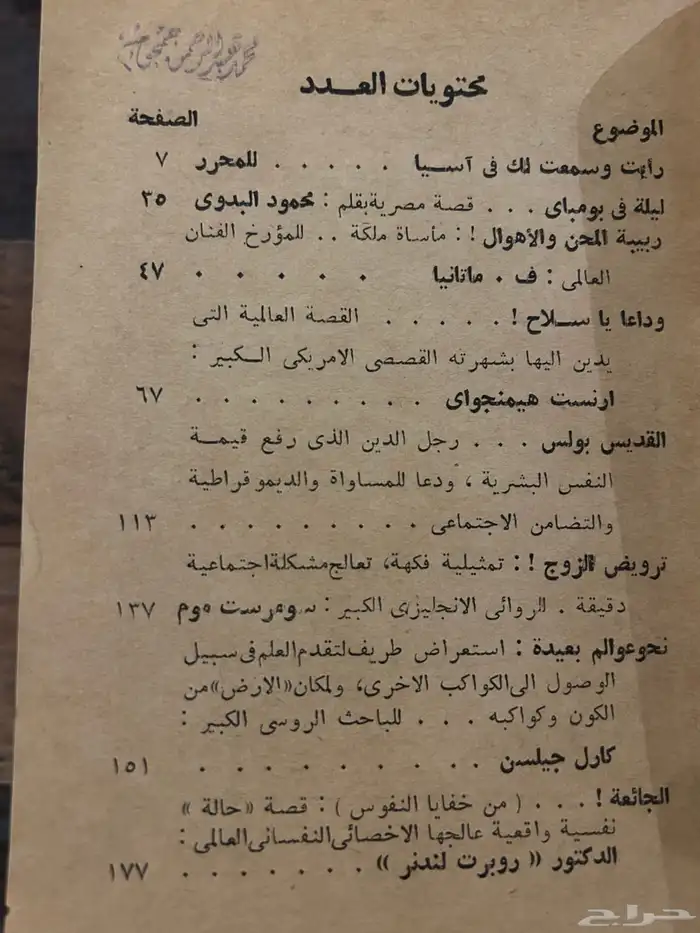 محمد عبد الرحمن جمجوم
محتويات العـــدد
الموضوع الصفحة
رأيت وسمعت لك فى آسـيا . . . . . للمحرر ٧
ليلة فى بومباى . . . قصة مصرية بقلم : محمود البدوى ٣٥
ربيبة المحن والأهوال ! : مأساة ملكة . . للمؤرخ الفنان
العالمى : ف . ماتانيا . . . . . . ٤٧
وداعا يا ســلاح ! . . . . . القصة العالمية التى
يدين اليها بشهرته القصصى الامريكى الـكبير :
ارنست هيمنجواى . . . . . . . . . ٦٧
القديس بولس . . . رجل الدين الذى رفع قيمـة
النفس البشرية ، ودعا للمساواة والديموقراطية
والتضامن الاجتماعى . . . . . . . . . ١١٣
ترويض الزوج ! : تمثيلية فكهة، تعالج مشكلة اجتماعية
دقيقة . للروائى الانجليزى الكبير : سومرست موم ١٣٧
نحو عوالم بعيدة : استعراض طريف لتقدم العلم فى سبيل
الوصول الى الكواكب الاخرى، ولمكان «الارض» من
الكون وكواكبه . . . للباحث الروسى الكبير :
كارل جيلسن . . . . . . . . . ١٥١
الجائعة ! . . . ( من خفايا النفوس ) : قصة « حالة »
نفسية واقعية عالجها الاخصائى النفسانى العالمى :
الدكتور « روبرت لندنر » . . . . . . . ١٧٧
حراج